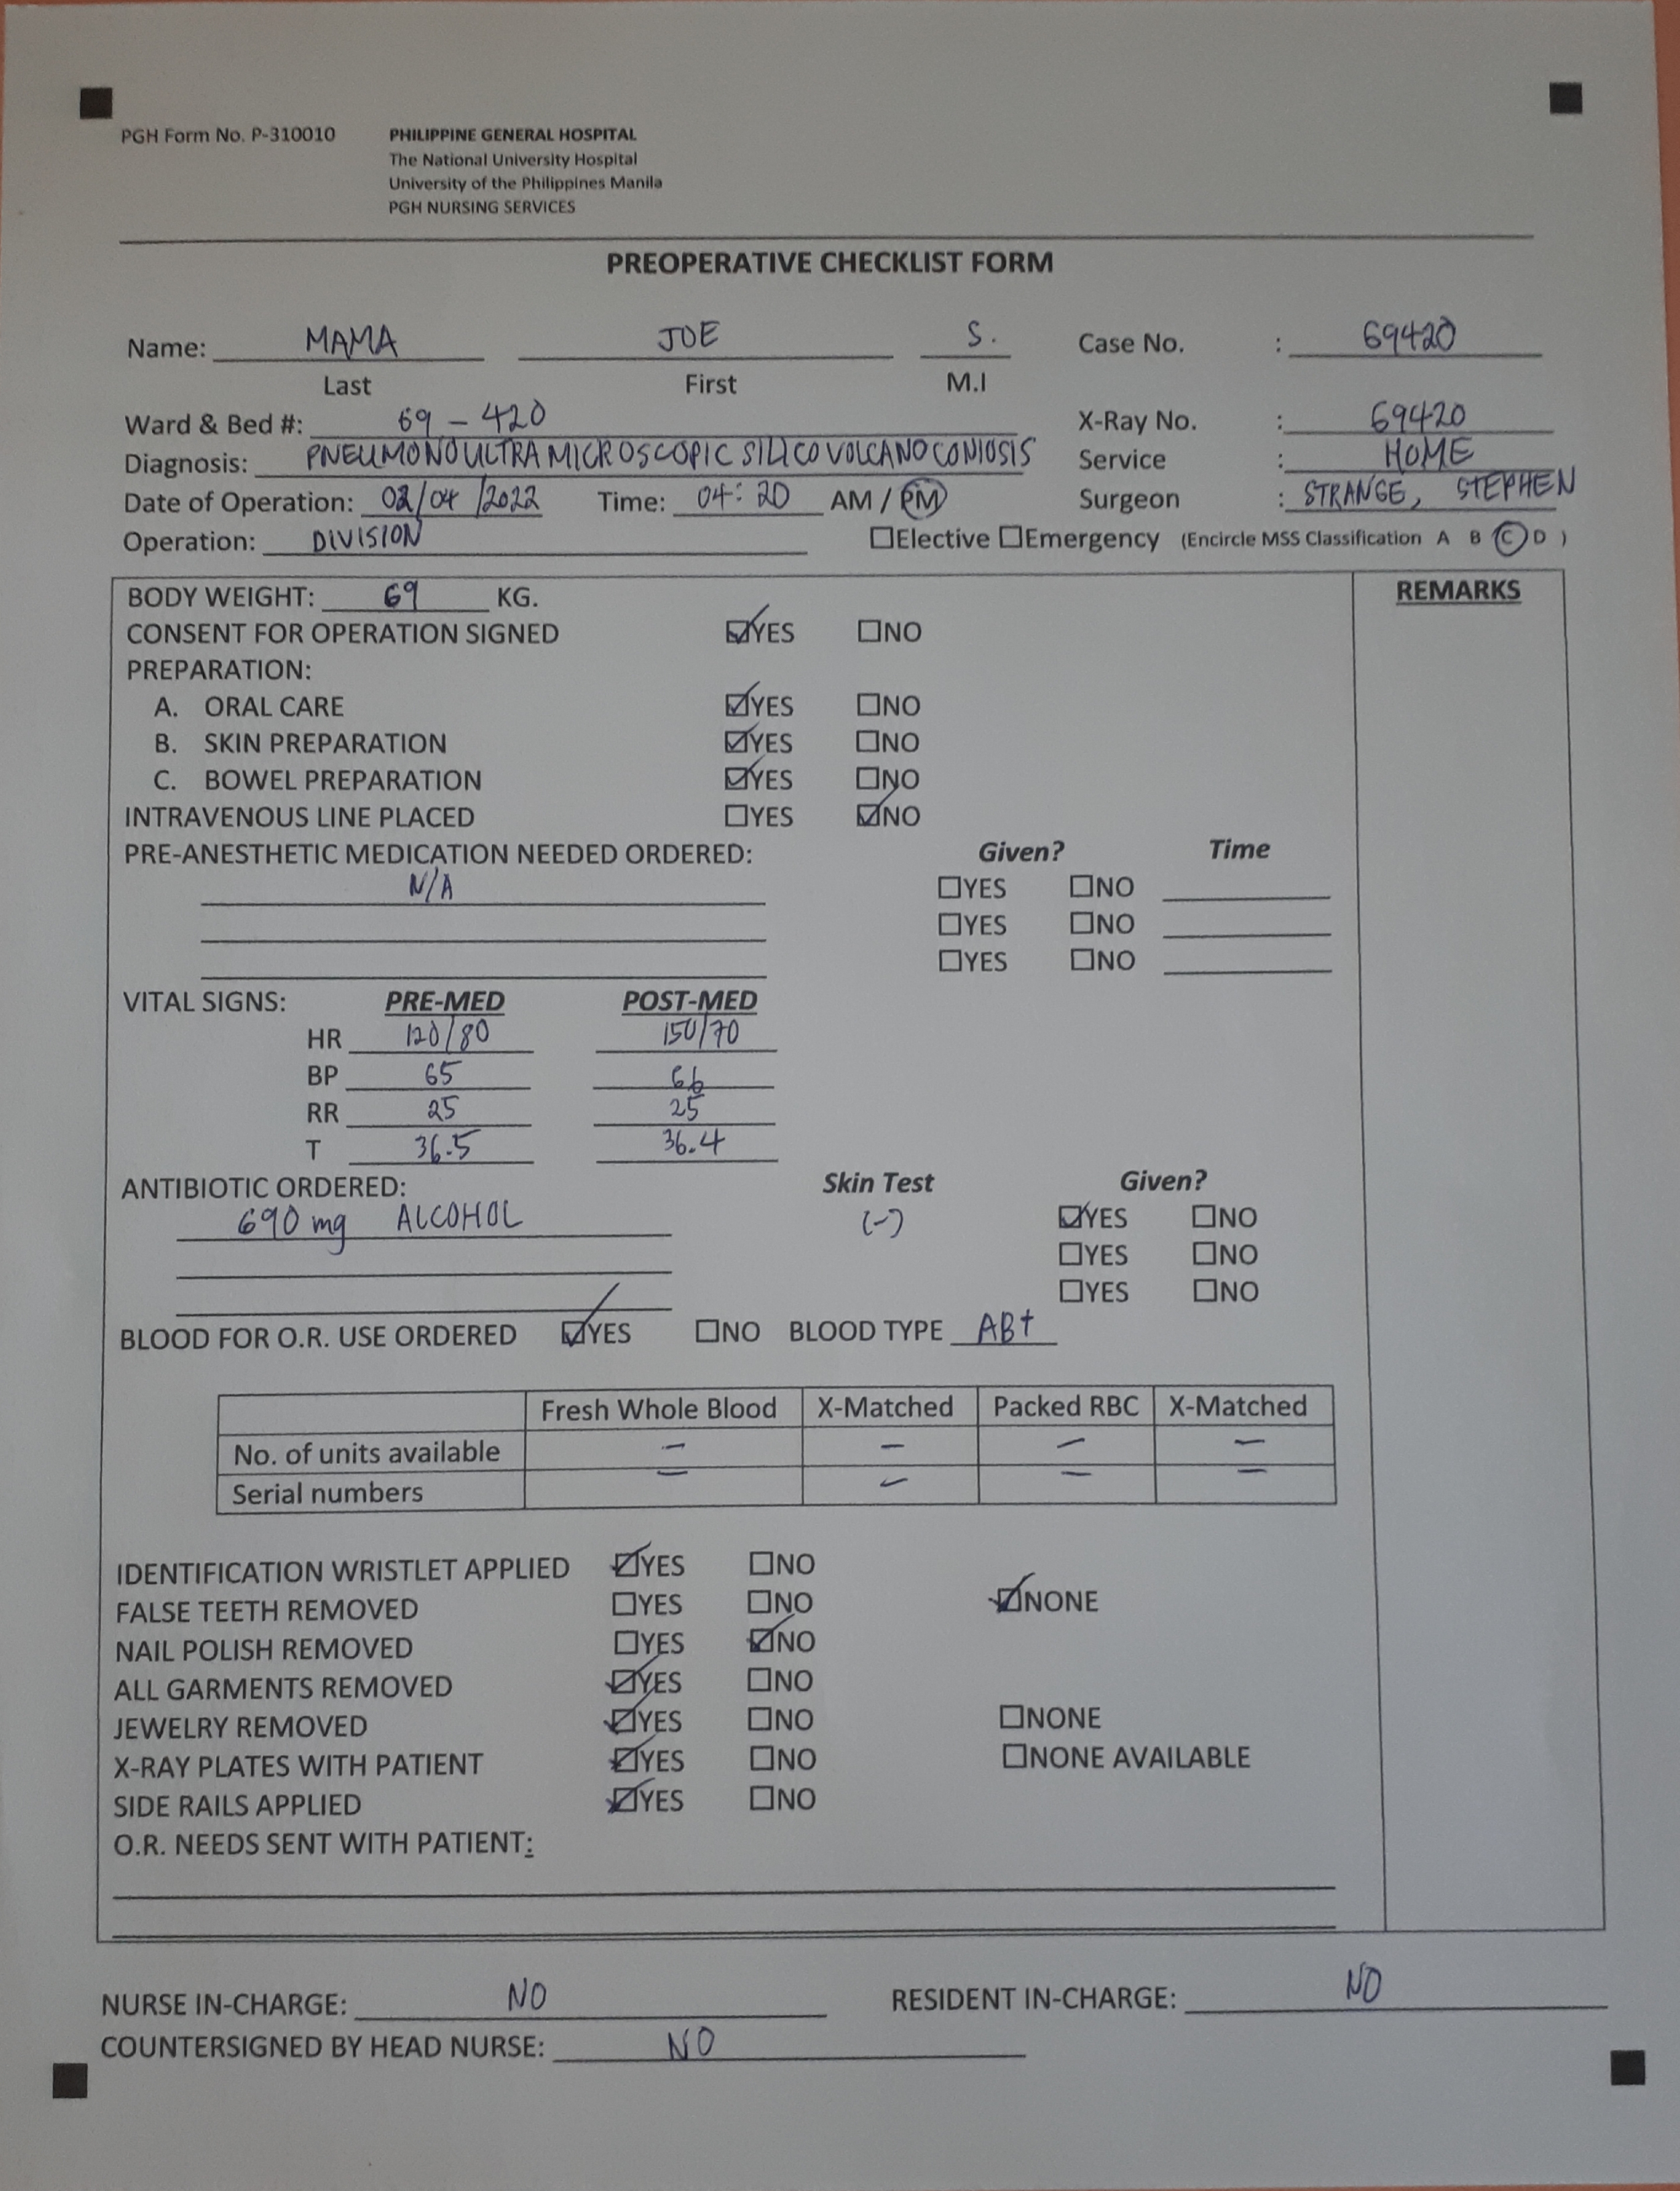 PGH Form No. P-310010 PHILIPPINE GENERAL HOSPITAL
The National University Hospital
University of the Philippines Manila
PGH NURSING SERVICES
PREOPERATIVE CHECKLIST FORM
Name: MAMA JOE S. Case No. : 69420
Last First M.I
Ward & Bed #: 69 - 420 X-Ray No. : 69420
Diagnosis: PNEUMONOULTRAMICROSCOPICSILICOVOLCANOCONIOSIS Service : HOME
Date of Operation: 02/04/2022 Time: 04:20 AM / PM Surgeon : STRANGE, STEPHEN
Operation: DIVISION ☐Elective ☐Emergency (Encircle MSS Classification A B C D )
BODY WEIGHT: 69 KG. REMARKS
CONSENT FOR OPERATION SIGNED ☑YES ☐NO
PREPARATION:
A. ORAL CARE ☑YES ☐NO
B. SKIN PREPARATION ☑YES ☐NO
C. BOWEL PREPARATION ☑YES ☐NO
INTRAVENOUS LINE PLACED ☐YES ☑NO
PRE-ANESTHETIC MEDICATION NEEDED ORDERED: Given? Time
N/A ☐YES ☐NO
☐YES ☐NO
☐YES ☐NO
VITAL SIGNS: PRE-MED POST-MED
HR 120/80 150/70
BP 65 66
RR 25 25
T 36.5 36.4
ANTIBIOTIC ORDERED: Skin Test Given?
690 mg ALCOHOL (-) ☑YES ☐NO
☐YES ☐NO
☐YES ☐NO
BLOOD FOR O.R. USE ORDERED ☑YES ☐NO BLOOD TYPE AB+
Fresh Whole Blood X-Matched Packed RBC X-Matched
No. of units available - - - -
Serial numbers - - - -
IDENTIFICATION WRISTLET APPLIED ☑YES ☐NO
FALSE TEETH REMOVED ☐YES ☐NO ☑NONE
NAIL POLISH REMOVED ☐YES ☑NO
ALL GARMENTS REMOVED ☑YES ☐NO
JEWELRY REMOVED ☑YES ☐NO ☐NONE
X-RAY PLATES WITH PATIENT ☑YES ☐NO ☐NONE AVAILABLE
SIDE RAILS APPLIED ☑YES ☐NO
O.R. NEEDS SENT WITH PATIENT:
NURSE IN-CHARGE: NO RESIDENT IN-CHARGE: NO
COUNTERSIGNED BY HEAD NURSE: NO